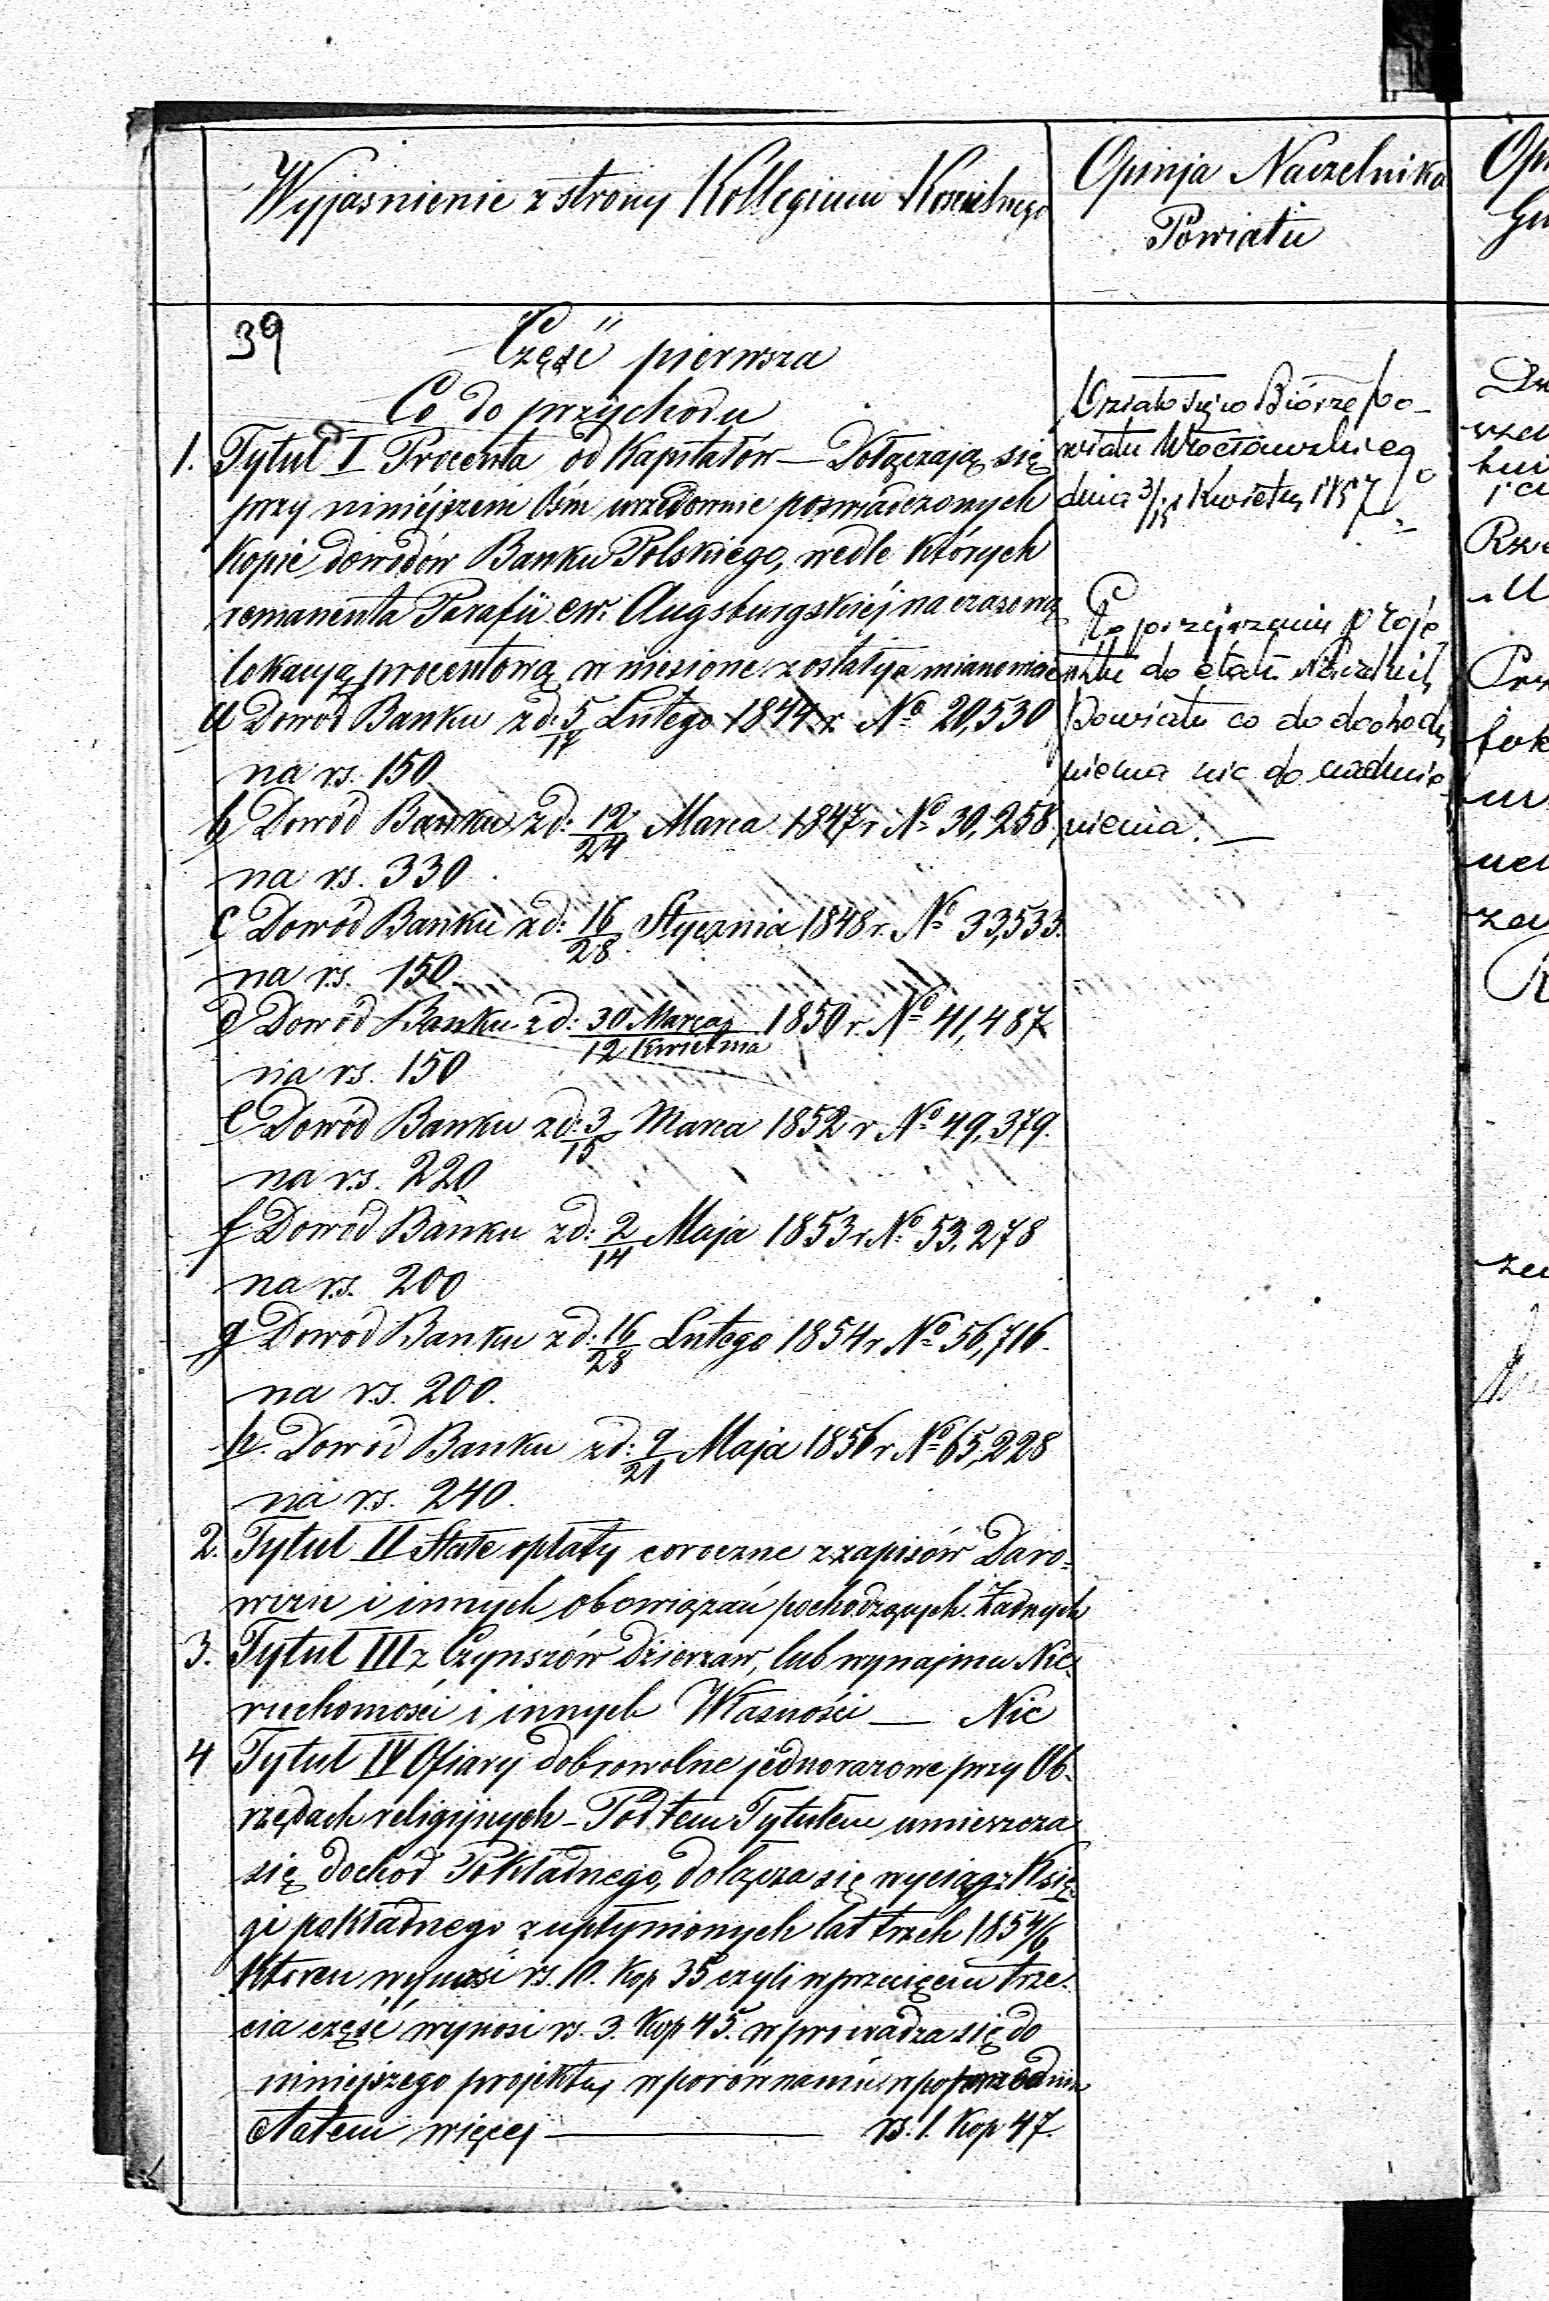 Wyjasnienie z strony Kollegium Kościelnego
Opinja Naczelnika
Powiatu
39
Część pierwsza
Co do przychodu
1. Tytuł I Procenta od Kapitałów — Dołączają się
przy niniéjszem Ośm urzędownie poświadczonych
Kopié dowodów Banku Polskiego, wedle których
remanenta Parafii ew: Augsburgskiéj na czasową
lokacyą procentową wniesione zostały a mianowicie
a Dowód Banku z d: 5/17 Lutego 1844 r. No 20,530
na rs. 150
b Dowód Banku z d: 12/24 Marca 1847 r No 30,258.
na rs. 330
c Dowód Banku z d: 16/28 Stycznia 1848 r. No 33,533.
na rs. 150.
d Dowód Banku z d: 30 Marca/12 Kwietnia 1850 r. No 41,487
na rs. 150
e Dowód Banku z d: 3/15 Marca 1852 r No 49,379.
na rs. 220
f Dowód Banku z d: 2/14 Maja 1853 r No 53,278
na rs. 200
g Dowód Banku z d: 16/28 Lutego 1854 r No 56,716.
na rs. 200.
h. Dowód Banku z d: 9/21 Maja 1856 r No 65,228
na rs. 240.
2. Tytuł II Stałe opłaty coroczne z zapisów Daro-
wizn i innych obowiązań pochodzących. Żadnych
3. Tytuł III z Czynszów Dzierzaw, lub wynajmu Nie-
ruchomości i innych Własności — Nic
4 Tytuł IV Ofiary dobrowolne jednorazowe przy Ob-
rzędach religijnych – Pod tem Tytułem umieszcza
się dochód Pokładnego, dołącza się wyciąg z Księ-
gi pokładnego z upłynionych lat trzech 1854/6
Którem wynosi rs. 10. Kop 35 czyli w przecięciu trze-
cia część wynosi rs. 3. Kop 45. wprowadza się do
niniejszego projektu, w porównaniu w poprzednim
etatem więcej — rs. 1. Kop 47.
Działo się w Biórze Po-
wiatu Włocławskiego
dnia 3/15 Kwietnia 1857 r.
Po przejrzeniu proje
ktu do etatu Naczelnik
Powiatu co do dochodu
niema nic do nadmie-
nienia. —